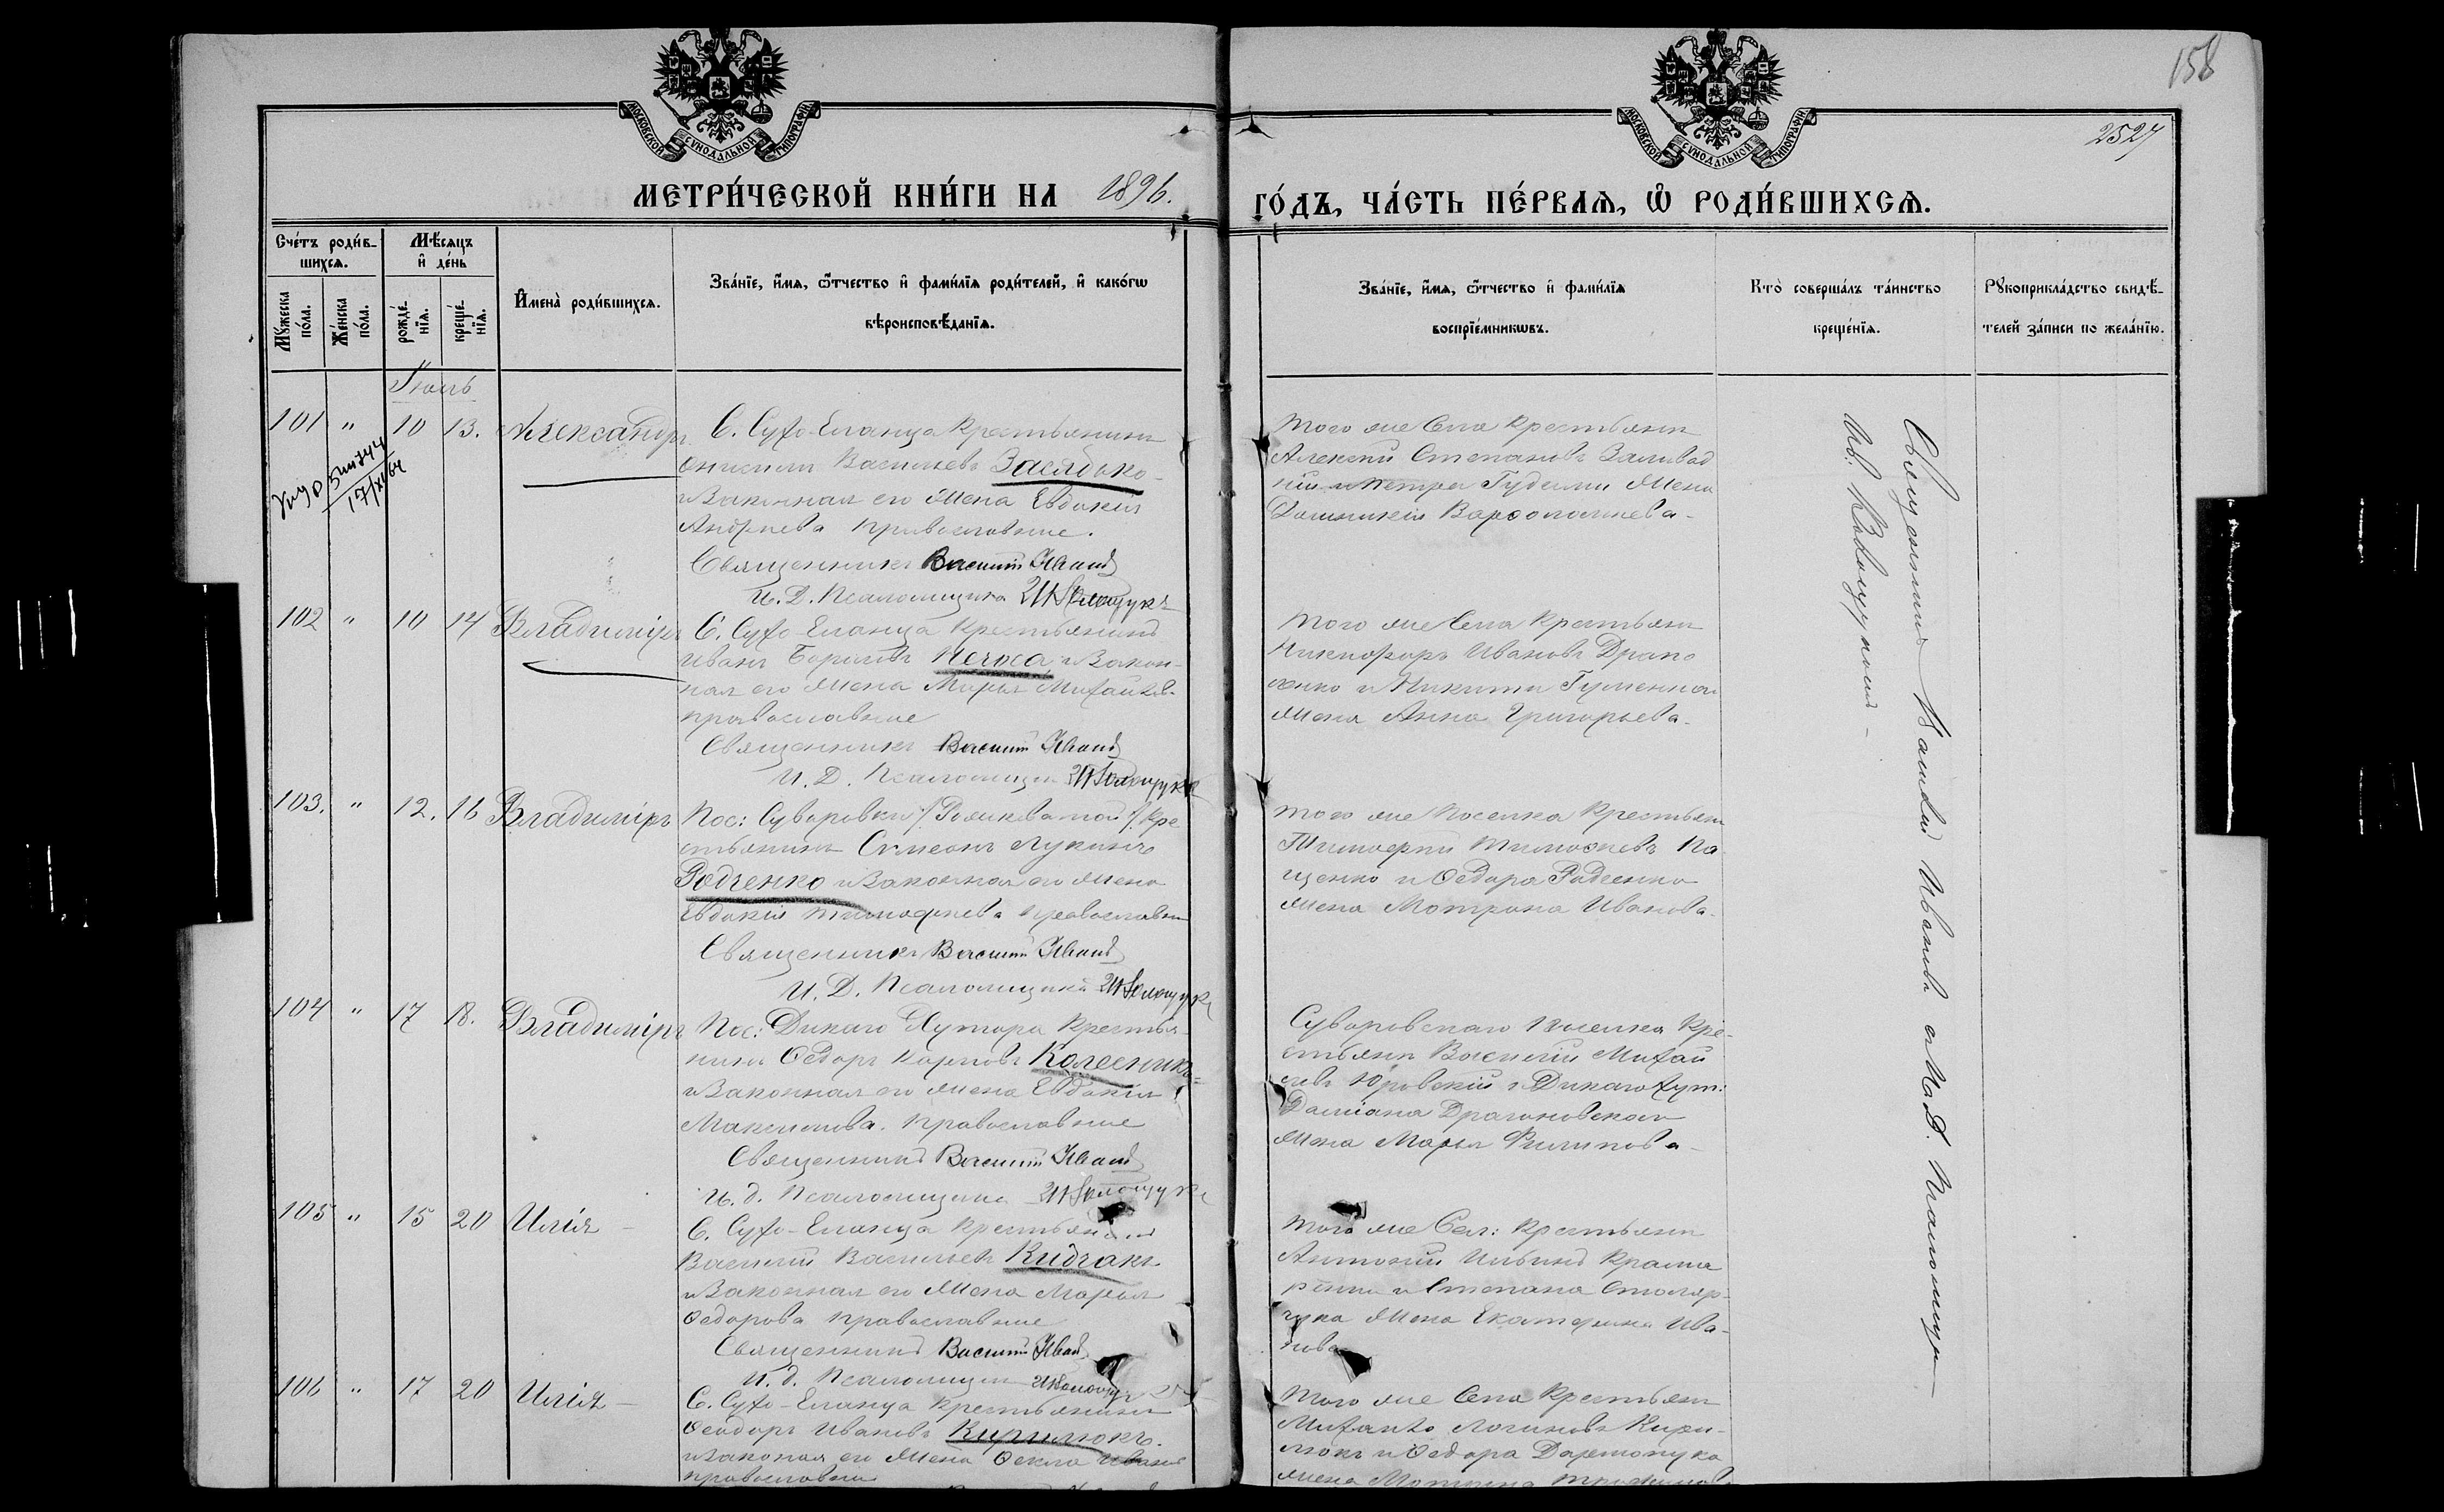 158
2527
МОСКОВСКОЙ СУНОДАЛЬНОЙ ТИПОГРАФІИ
МОСКОВСКОЙ СУНОДАЛЬНОЙ ТИПОГРАФІИ
МЕТРИ́ЧЕСКОЙ КНИ́ГИ НА 1896. ГО́ДЪ, ЧА́СТЬ ПЕ́РВАЯ, Ѡ РОДИ́ВШИХСЯ.
Сче́тъ роди́в-
шихся.
Мѣсяцъ
и де́нь
Мꙋжеска
по́ла.
Же́нска
по́ла.
рожде́-
нїя.
креще́-
нїя.
Имена̀ роди́вшихся.
Зва́нїе, и́мя, ѻ́тчество и фами́лїя роди́телей, и како́гѡ
вѣроисповѣ́данїя.
Зва́нїе, и́мя, ѻ́тчество и фами́лїя
воспрїе́мникѡвъ.
Кто̀ соверша́лъ та́инство
креще́нїя.
Рꙋкоприкла́дство свидѣ́-
телей за́писи по жела́нїю.
Іюль
101 " 10 13. Александръ
С. Сухо-Еланца Крестьянинъ
Онисимъ Васильевъ Заябько
и Законная его Жена Евдокія
Андреева православные.
Священникъ Василій Ивановъ
И. Д. Псаломщика
Того же Села Крестьянинъ
Алексѣй Степановъ Заливад
ній и Петра Гудыми Жена
Домникія Варѳоломеева
17/XI 64
102 " 10 14 Владиміръ
С. Сухо-Еланца Крестьянинъ
Иванъ Борисовъ и Закон-
ная его Жена Марья Михайлов.
православные
Священникъ Василій Ивановъ
И. Д. Псаломщик
Того же Села Крестьянинъ
Никифоръ Ивановъ Драпо
женко и Никиты Гуменнаго
Жена Анна Григорьева
103. " 12. 16 Владиміръ
Пос: Суворовки /: :/ Кре
стьянинъ Симеонъ Лукинъ
Родченко и Законная его Жена
Евдокія Тимофеева православн
Священникъ Василій Ивановъ
И. Д. Псаломщика
Того же Поселка Крестьян
Тимофей Тимофеевъ Па
щенко и Ѳедора Радченко
Жена Мотрона Иванова
104 " 17 18. Владиміръ
Пос: Дикаго Хутора Крестья
нинъ Ѳедоръ Карповъ Колесникъ
и Законная его Жена Евдокія
Максимова. православные
Священникъ Василій Ивановъ
И. д. Псаломщика
Суворовскаго поселка Кре-
стьянинъ Василій Михай
ловъ Юровскій и Дикаго хут:
Даміана Драгановскаго
Жена Марья Филипова
105 " 15 20 Илія
С. Сухо-Еланца Крестьянинъ
Василій Васильевъ Кидчакъ
и Законная его Жена Марья
Ѳедорова православные
Священникъ Василій Ивановъ
И. д. Псаломщик
Того же Сел: Крестьянинъ
Антоній Ильинъ
и Степана Столяр-
чука Жена Екатерина Ива-
нова
106 " 17 20 Илія
С. Сухо-Еланца Крестьянинъ
Ѳеодоръ Ивановъ Кирилюкъ
и Законная его Жена Ѳекла
православные
Того же Села Крестьян
Михаилъ Логиновъ Кири-
люкъ и Ѳедора
Жена Мотрона
Священникъ Василій Ивановъ съ И. Д. Псаломщик